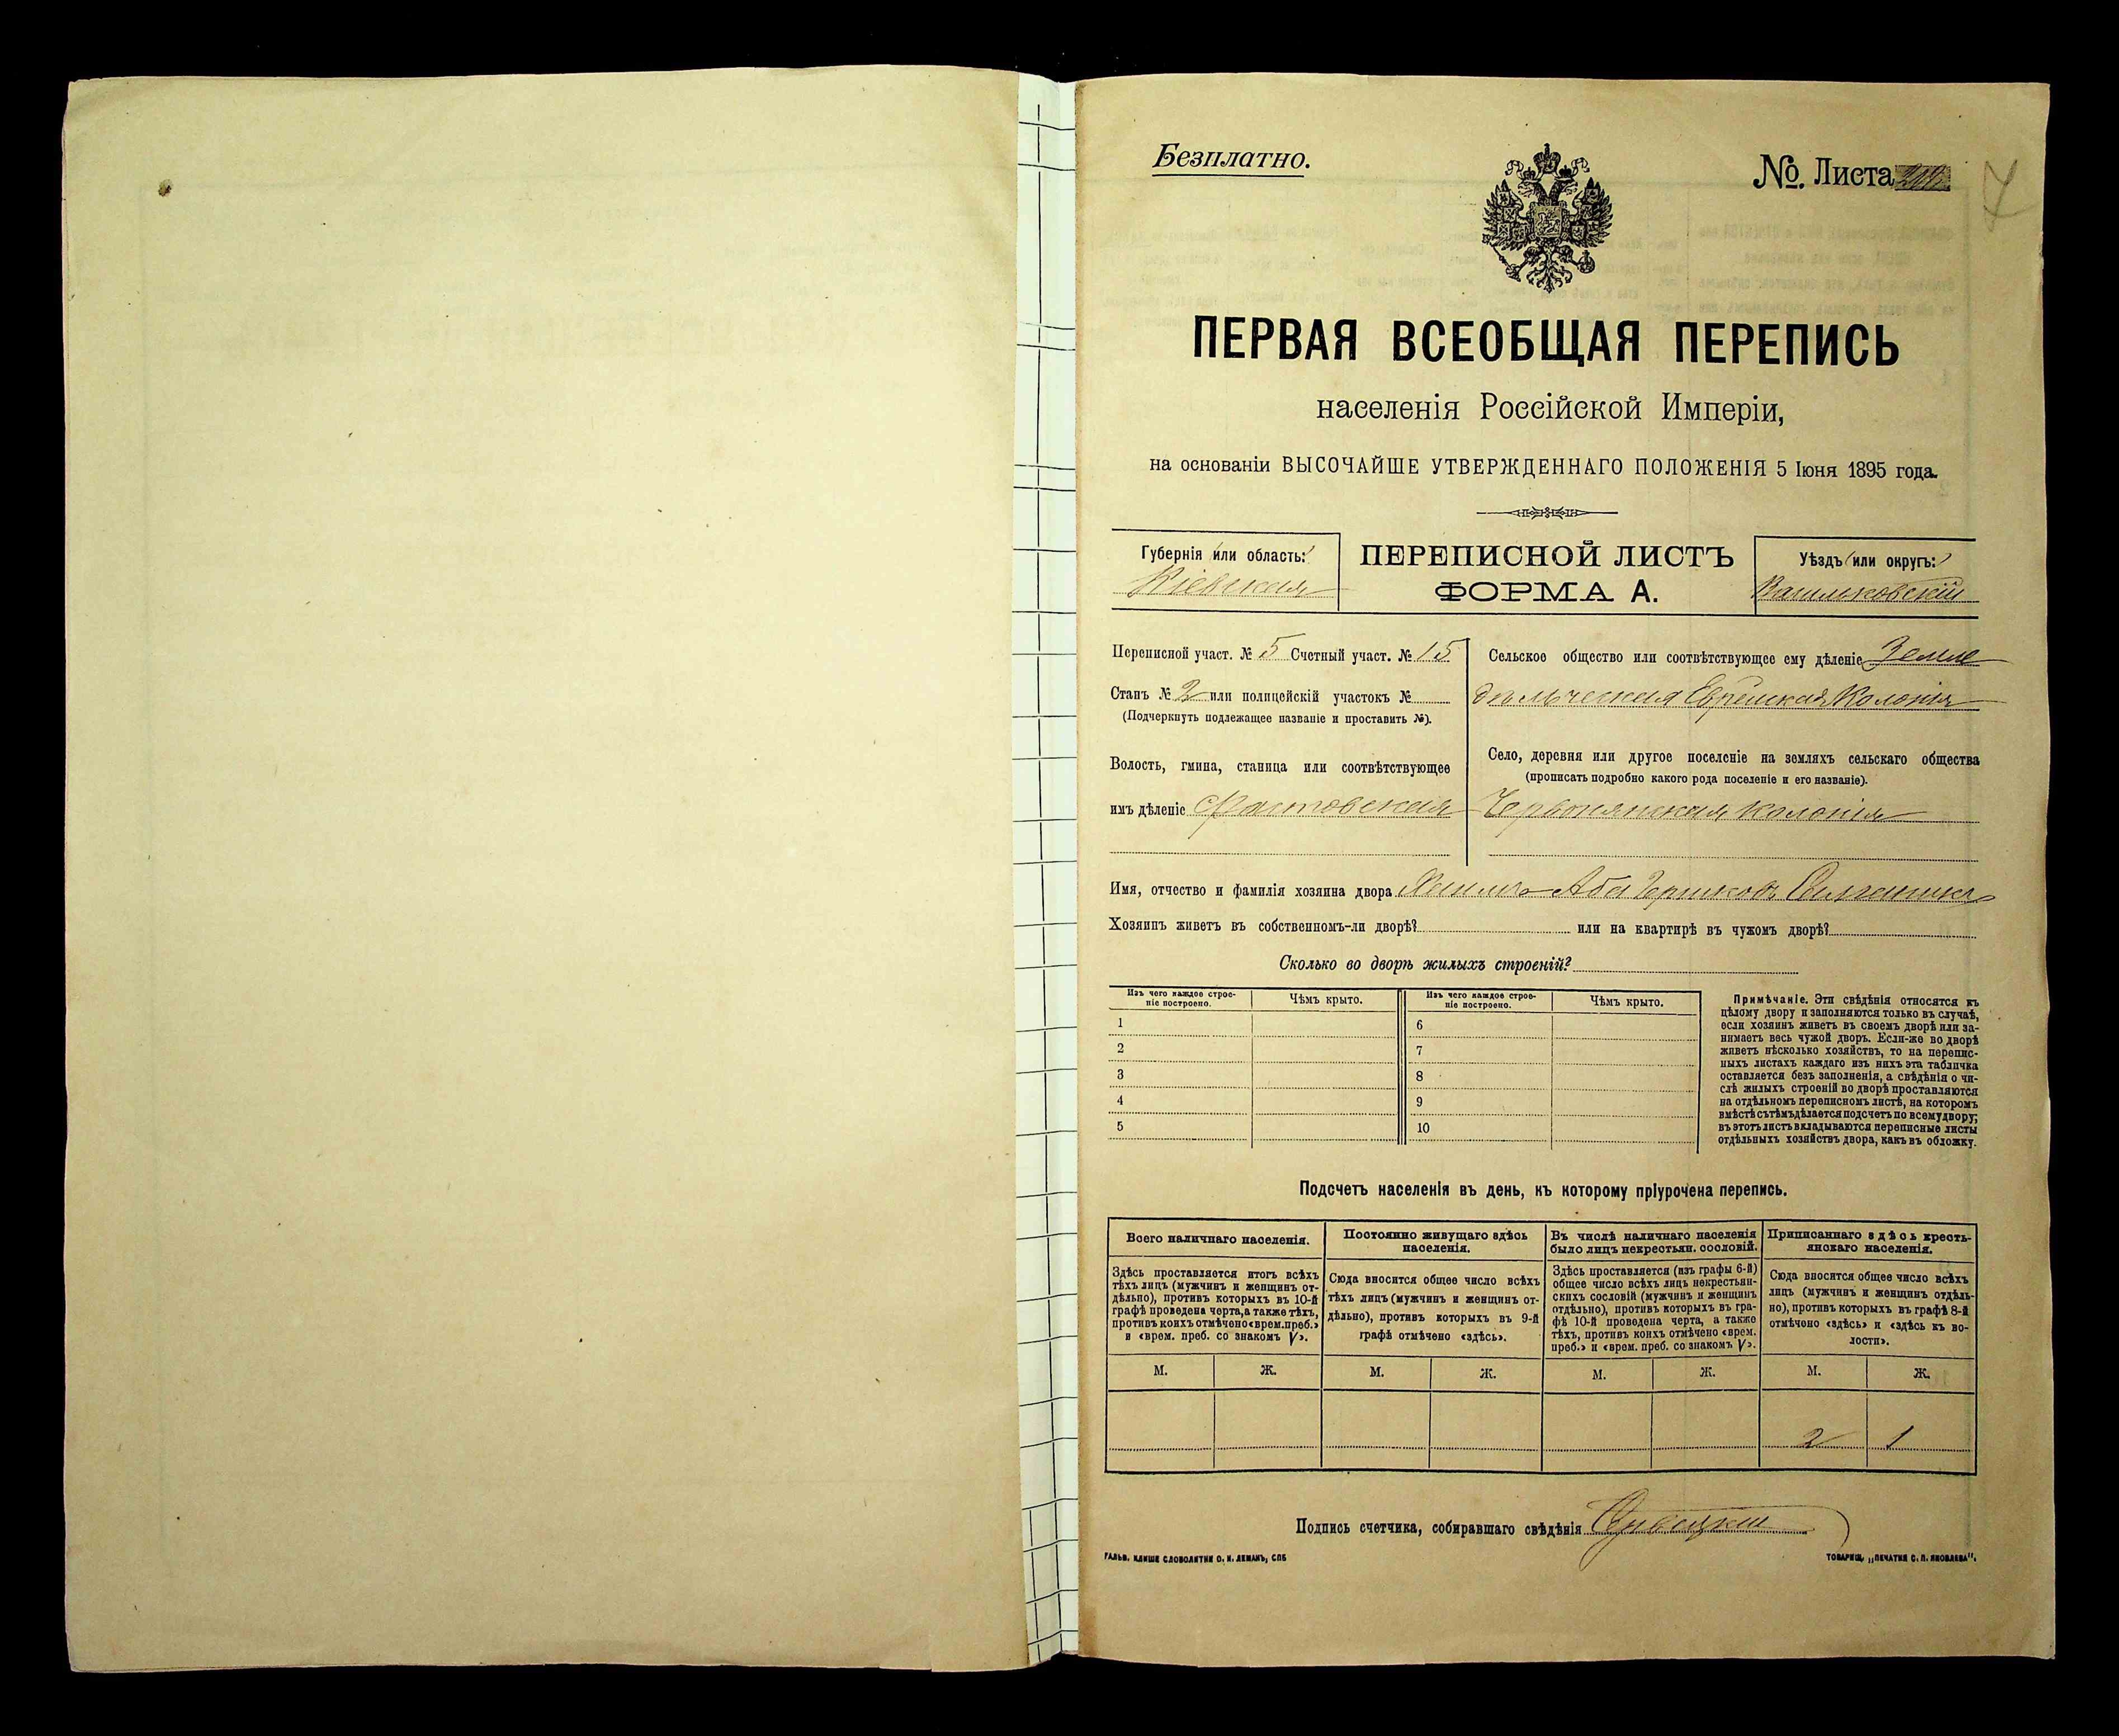 Безплатно.
№. Листа
ПЕРВАЯ ВСЕОБЩАЯ ПЕРЕПИСЬ
населенія Россійской Имперіи,
на основаніи ВЫСОЧАЙШЕ УТВЕРЖДЕННАГО ПОЛОЖЕНІЯ 5 Іюня 1895 года.
Губернія или область:
Кіевская
ПЕРЕПИСНОЙ ЛИСТЪ
ФОРМА А.
Уѣздъ или округъ:
Васильковскій
Переписной участ. № 5 Счетный участ. № 15
Станъ № 2 или полицейскій участокъ №
(Подчеркнуть подлежащее названіе и проставить №).
Волость, гмина, станица или соотвѣтствующее
имъ дѣленіе Фастовская
Сельское общество или соотвѣтствующее ему дѣленіе Земле
дѣльческая Еврейская Колонія
Село, деревня или другое поселеніе на земляхъ сельскаго общества
(прописать подробно какого рода поселеніе и его названіе).
Червонянская колонія
Имя, отчество и фамилія хозяина двора Аба
Хозяинъ живетъ въ собственномъ-ли дворѣ? или на квартирѣ въ чужомъ дворѣ?
Сколько во дворѣ жилыхъ строеній?
Изъ чего каждое строе-
ніе построено.
Чѣмъ крыто.
Изъ чего каждое строе-
ніе построено.
Чѣмъ крыто.
1 6
2 7
3 8
4 9
5 10
Примѣчаніе. Эти свѣдѣнія относятся къ
цѣлому двору и заполняются только въ случаѣ,
если хозяинъ живетъ въ своемъ дворѣ или за-
нимаетъ весь чужой дворъ. Если-же во дворѣ
живетъ нѣсколько хозяйствъ, то на перепис-
ныхъ листахъ каждаго изъ нихъ эта табличка
оставляется безъ заполненія, а свѣдѣнія о чи-
слѣ жилыхъ строеній во дворѣ проставляются
на отдѣльномъ переписномъ листѣ, на которомъ
вмѣстѣ съ тѣмъ дѣлается подсчетъ по всему двору;
въ этотъ листъ вкладываются переписные листы
отдѣльныхъ хозяйствъ двора, какъ въ обложку.
Подсчетъ населенія въ день, къ которому пріурочена перепись.
Всего наличнаго населенія.
Здѣсь проставляется итогъ всѣхъ
тѣхъ лицъ (мужчинъ и женщинъ от-
дѣльно), противъ которыхъ въ 10-й
графѣ проведена черта, а также тѣхъ,
противъ коихъ отмѣчено «врем. преб.»
и «врем. преб. со знакомъ V».
М. Ж.
Постоянно живущаго здѣсь
населенія.
Сюда вносится общее число всѣхъ
тѣхъ лицъ (мужчинъ и женщинъ от-
дѣльно), противъ которыхъ въ 9-й
графѣ отмѣчено «здѣсь».
М. Ж.
Въ числѣ наличнаго населенія
было лицъ некрестьян. сословій.
Здѣсь проставляется (изъ графы 6-й)
общее число всѣхъ лицъ некрестьян-
скихъ сословій (мужчинъ и женщинъ
отдѣльно), противъ которыхъ въ гра-
фѣ 10-й проведена черта, а также
тѣхъ, противъ коихъ отмѣчено «врем.
преб.» и «врем. преб. со знакомъ V».
М. Ж.
Приписаннаго здѣсь кресть-
янскаго населенія.
Сюда вносится общее число всѣхъ
лицъ (мужчинъ и женщинъ отдѣль-
но), противъ которыхъ въ графѣ 8-й
отмѣчено «здѣсь» и «здѣсь къ во-
лости».
М. Ж.
2 1
Подпись счетчика, собиравшаго свѣдѣнія
ГАЛЬВ. КЛИШЕ СЛОВОЛИТНИ О. И. ЛЕМАНЪ, СПБ
ТОВАРИЩ. „ПЕЧАТНЯ С. П. ЯКОВЛЕВА".